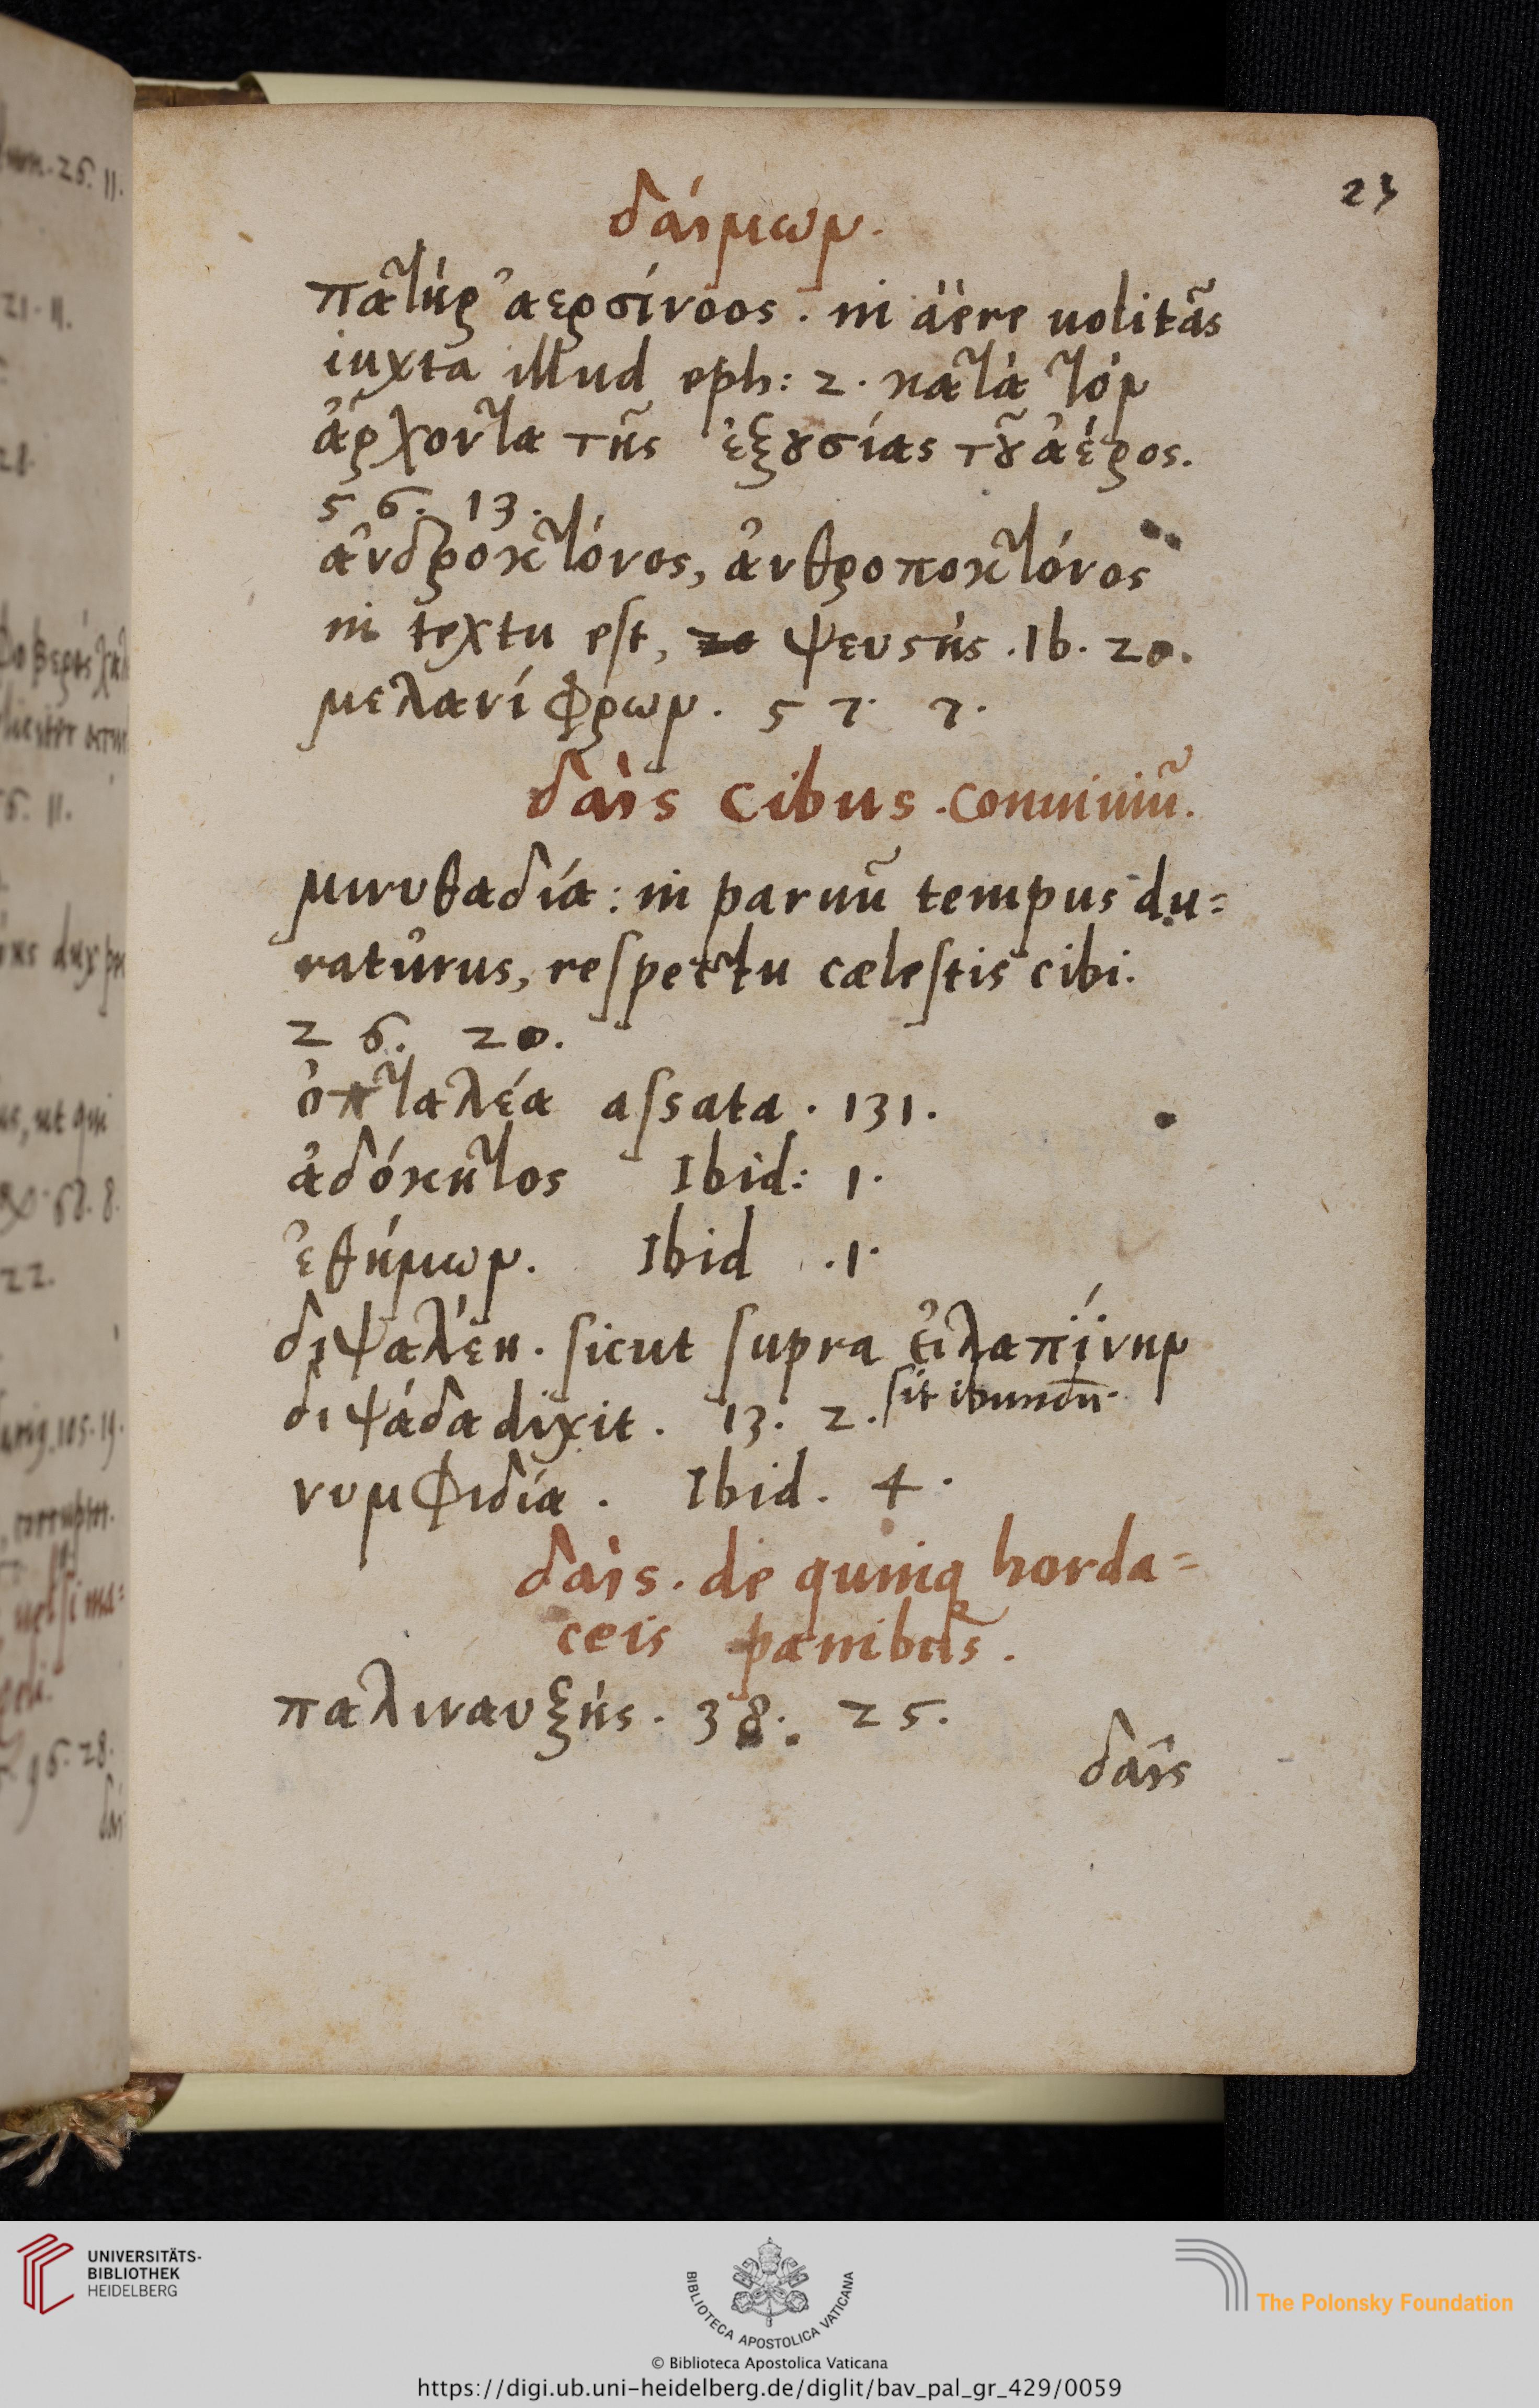 23
δάιμων.
πατὴρ ἀερσίνοος. in äere uolitãs
iuxta illud eph: 2. κατὰ τὸν
ἄρχοντα τῆς ἐξουσίας τοῦ ἀέρος.
5 6. 13.
ἀνδροκτόνος, ἀνθροποκτόνος
in textu est, ψευστής. Ib. 20.
μελανίφρων. 5 7. 7.
δαὶς cibus. conuiuiũ.
μινυθαδία: in paruũ tempus du=
raturus, respectu cælestis cibi.
2 6. 20.
ὀπταλέα assata. 131.
ἀδόκητος Ibid: 1.
ἐθήμων. Ibid .1.
διψαλέη. sicut supra εἰλαπίνην
διψάδα dixit. 13. 2. sitibundũ.
νυμφιδία. Ibid. 4.
δαὶς. de quinq horda=
ceis panibus.
παλιναυξής. 38. 25.
δαὶς
UNIVERSITÄTS-
BIBLIOTHEK
HEIDELBERG
BIBLIOTECA APOSTOLICA VATICANA
The Polonsky Foundation
© Biblioteca Apostolica Vaticana
https://digi.ub.uni-heidelberg.de/diglit/bav_pal_gr_429/0059